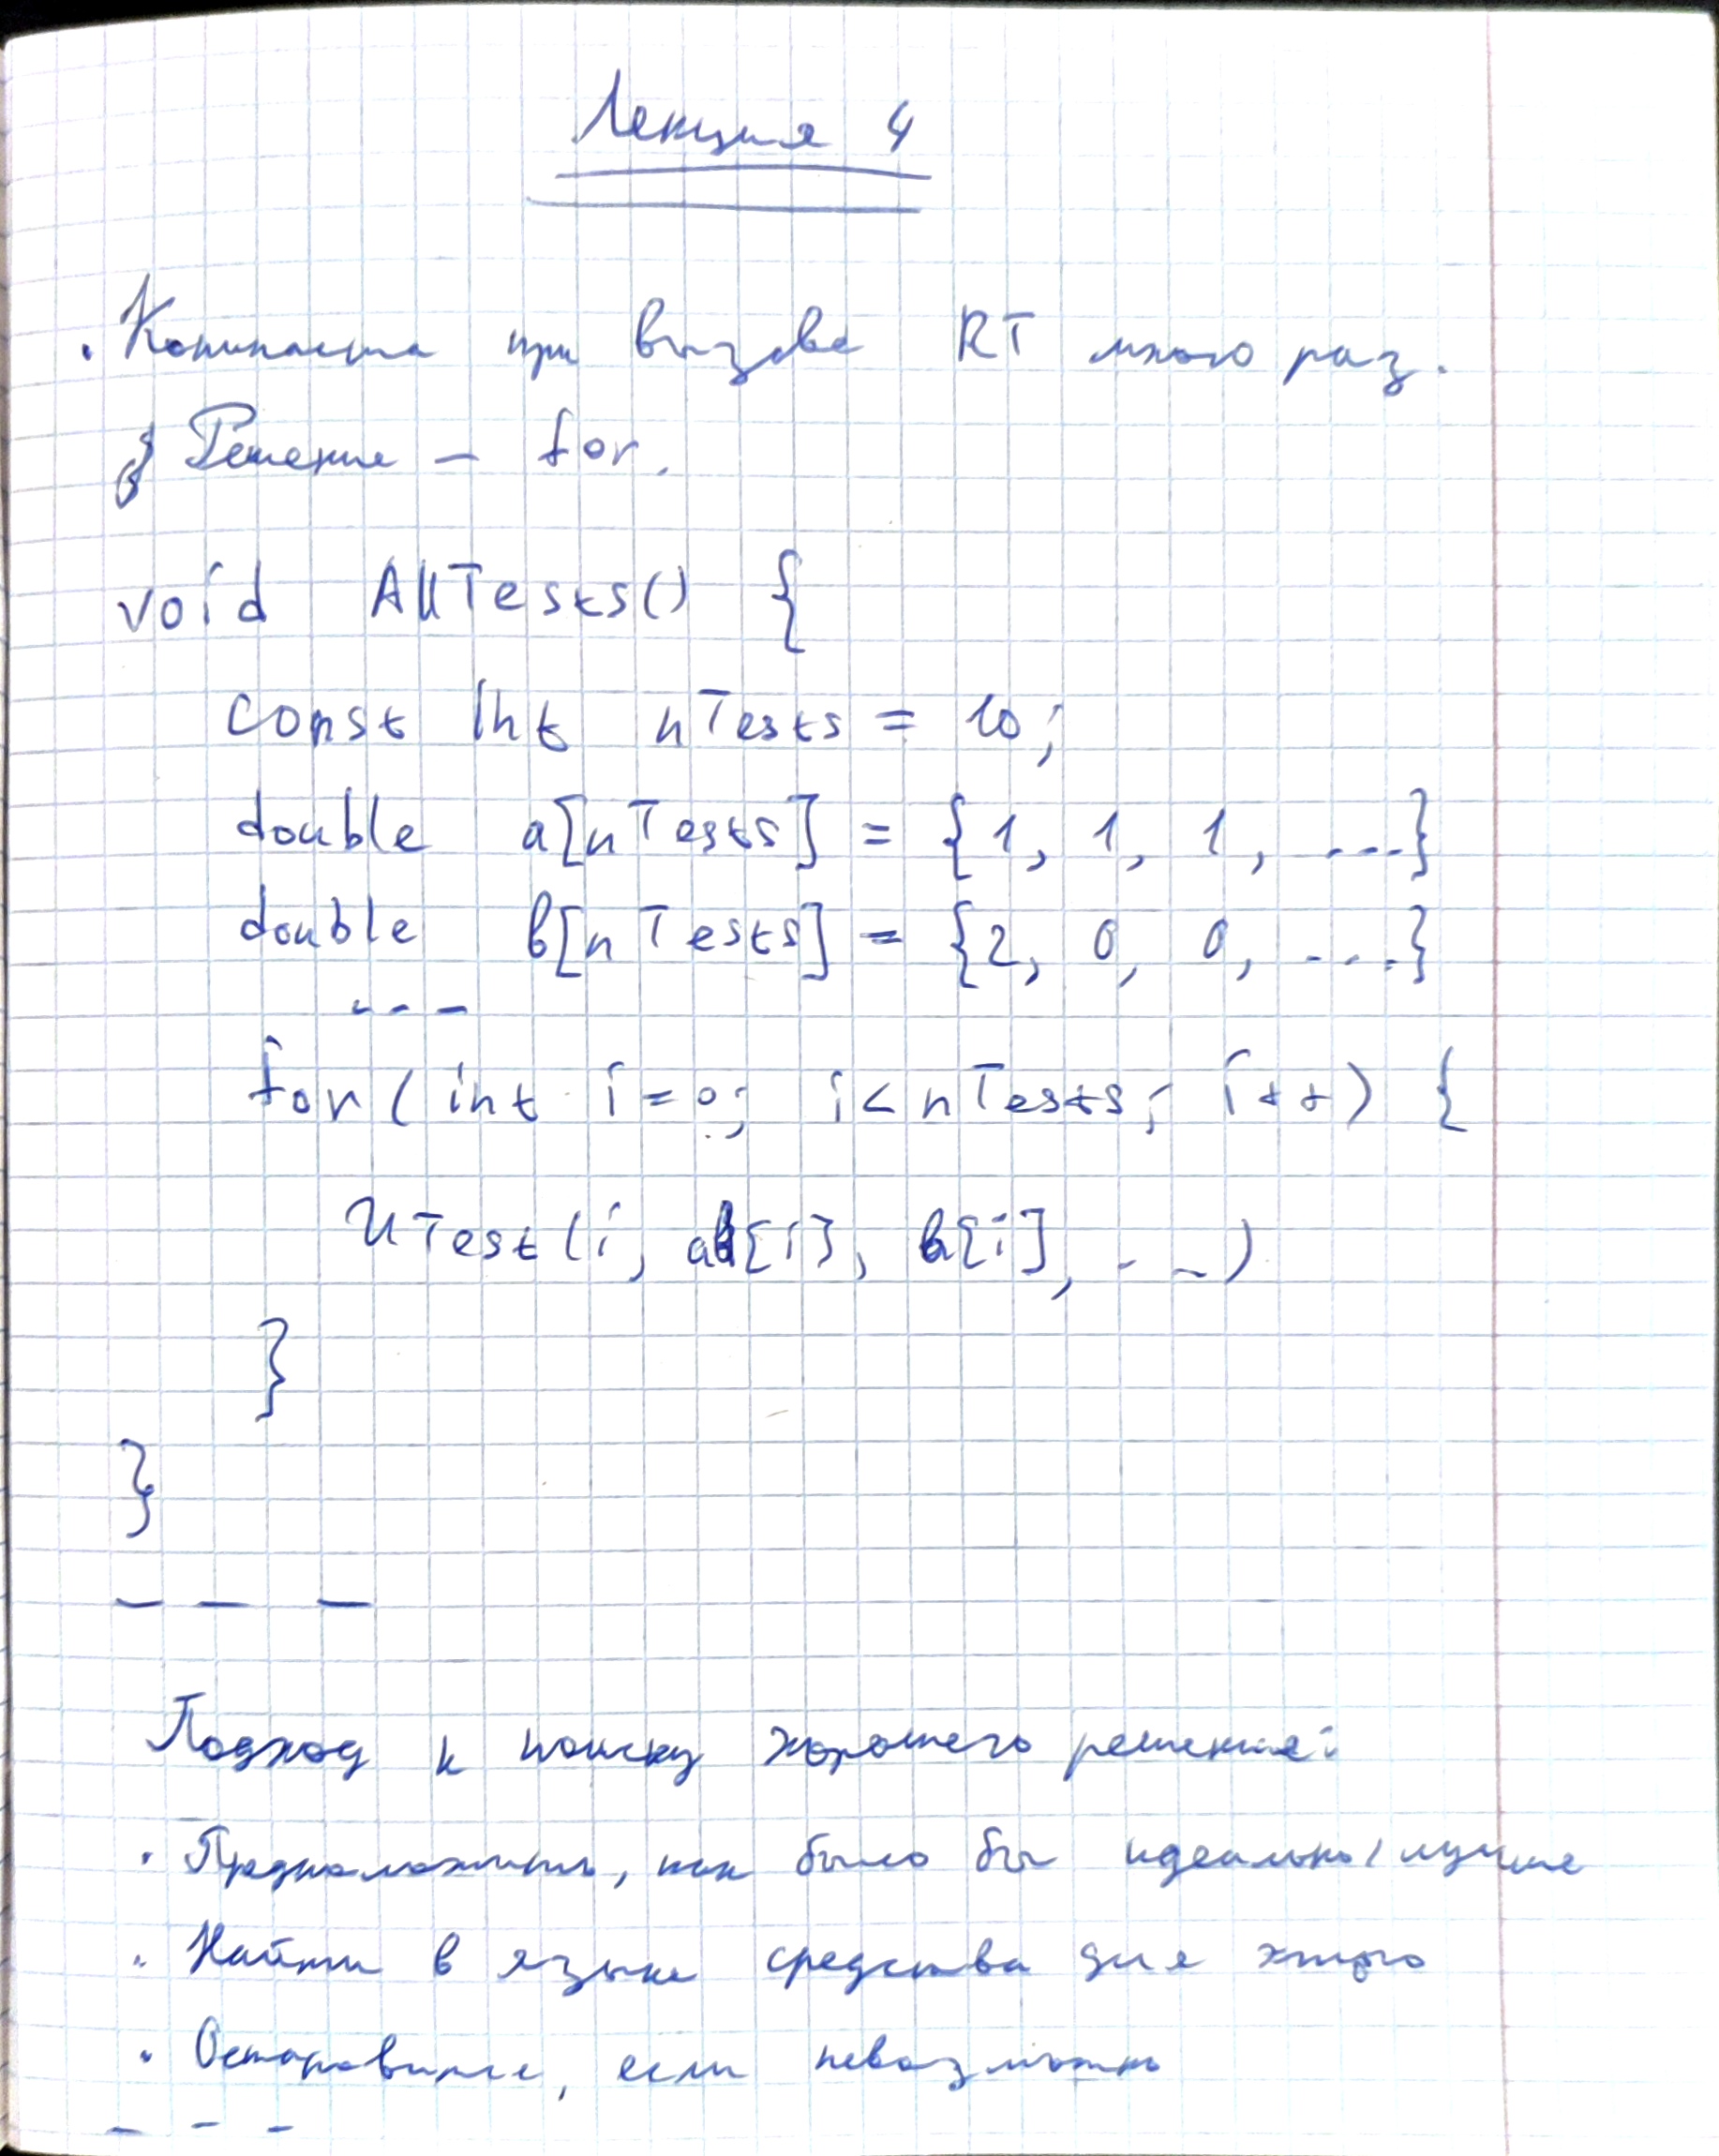 Лекция 4
. Копипаста при вызове RT много раз.
Решение – for.
void AllTests() {
const int nTests = 10;
double a[nTests] = {1, 1, 1, ...}
double b[nTests] = {2, 0, 0, ...}
---
for (int i=0; i< nTests; i++) {
UTest(i, a[i], b[i], ...)
}
}
– – –
Подход к поиску хорошего решения:
. Предположить, как было бы идеально/лучше
. Найти в языке средства для этого
. Остановится, если невозможно
- - -